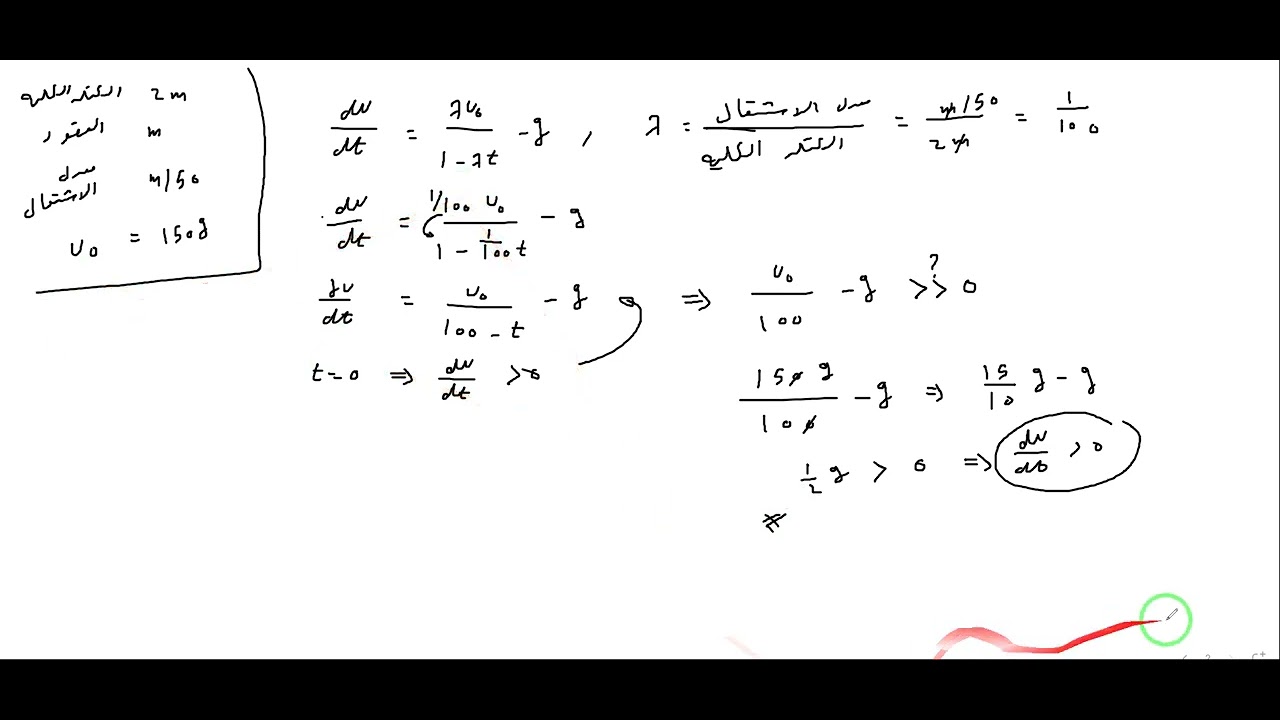 الكتلة الكلية 2m
الوقود m
معدل الاشتعال m/50
u₀ = 150g
dv/dt = λu₀/(1 - λt) - g , λ = معدل الاشتعال/الكتلة الكلية = (m/50)/2m = 1/100
dv/dt = (1/100 u₀)/(1 - 1/100 t) - g
dv/dt = u₀/(100 - t) - g ⇒ u₀/100 - g >> 0
?
t=0 ⇒ dv/dt >0
150g/100 - g ⇒ 15/10 g - g
1/2 g > 0 ⇒ dv/dt > 0
*